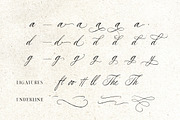 a a a a a a
d d d d d d d
g g g g g g
LIGATURES ft tt ll The Th
UNDERLINE